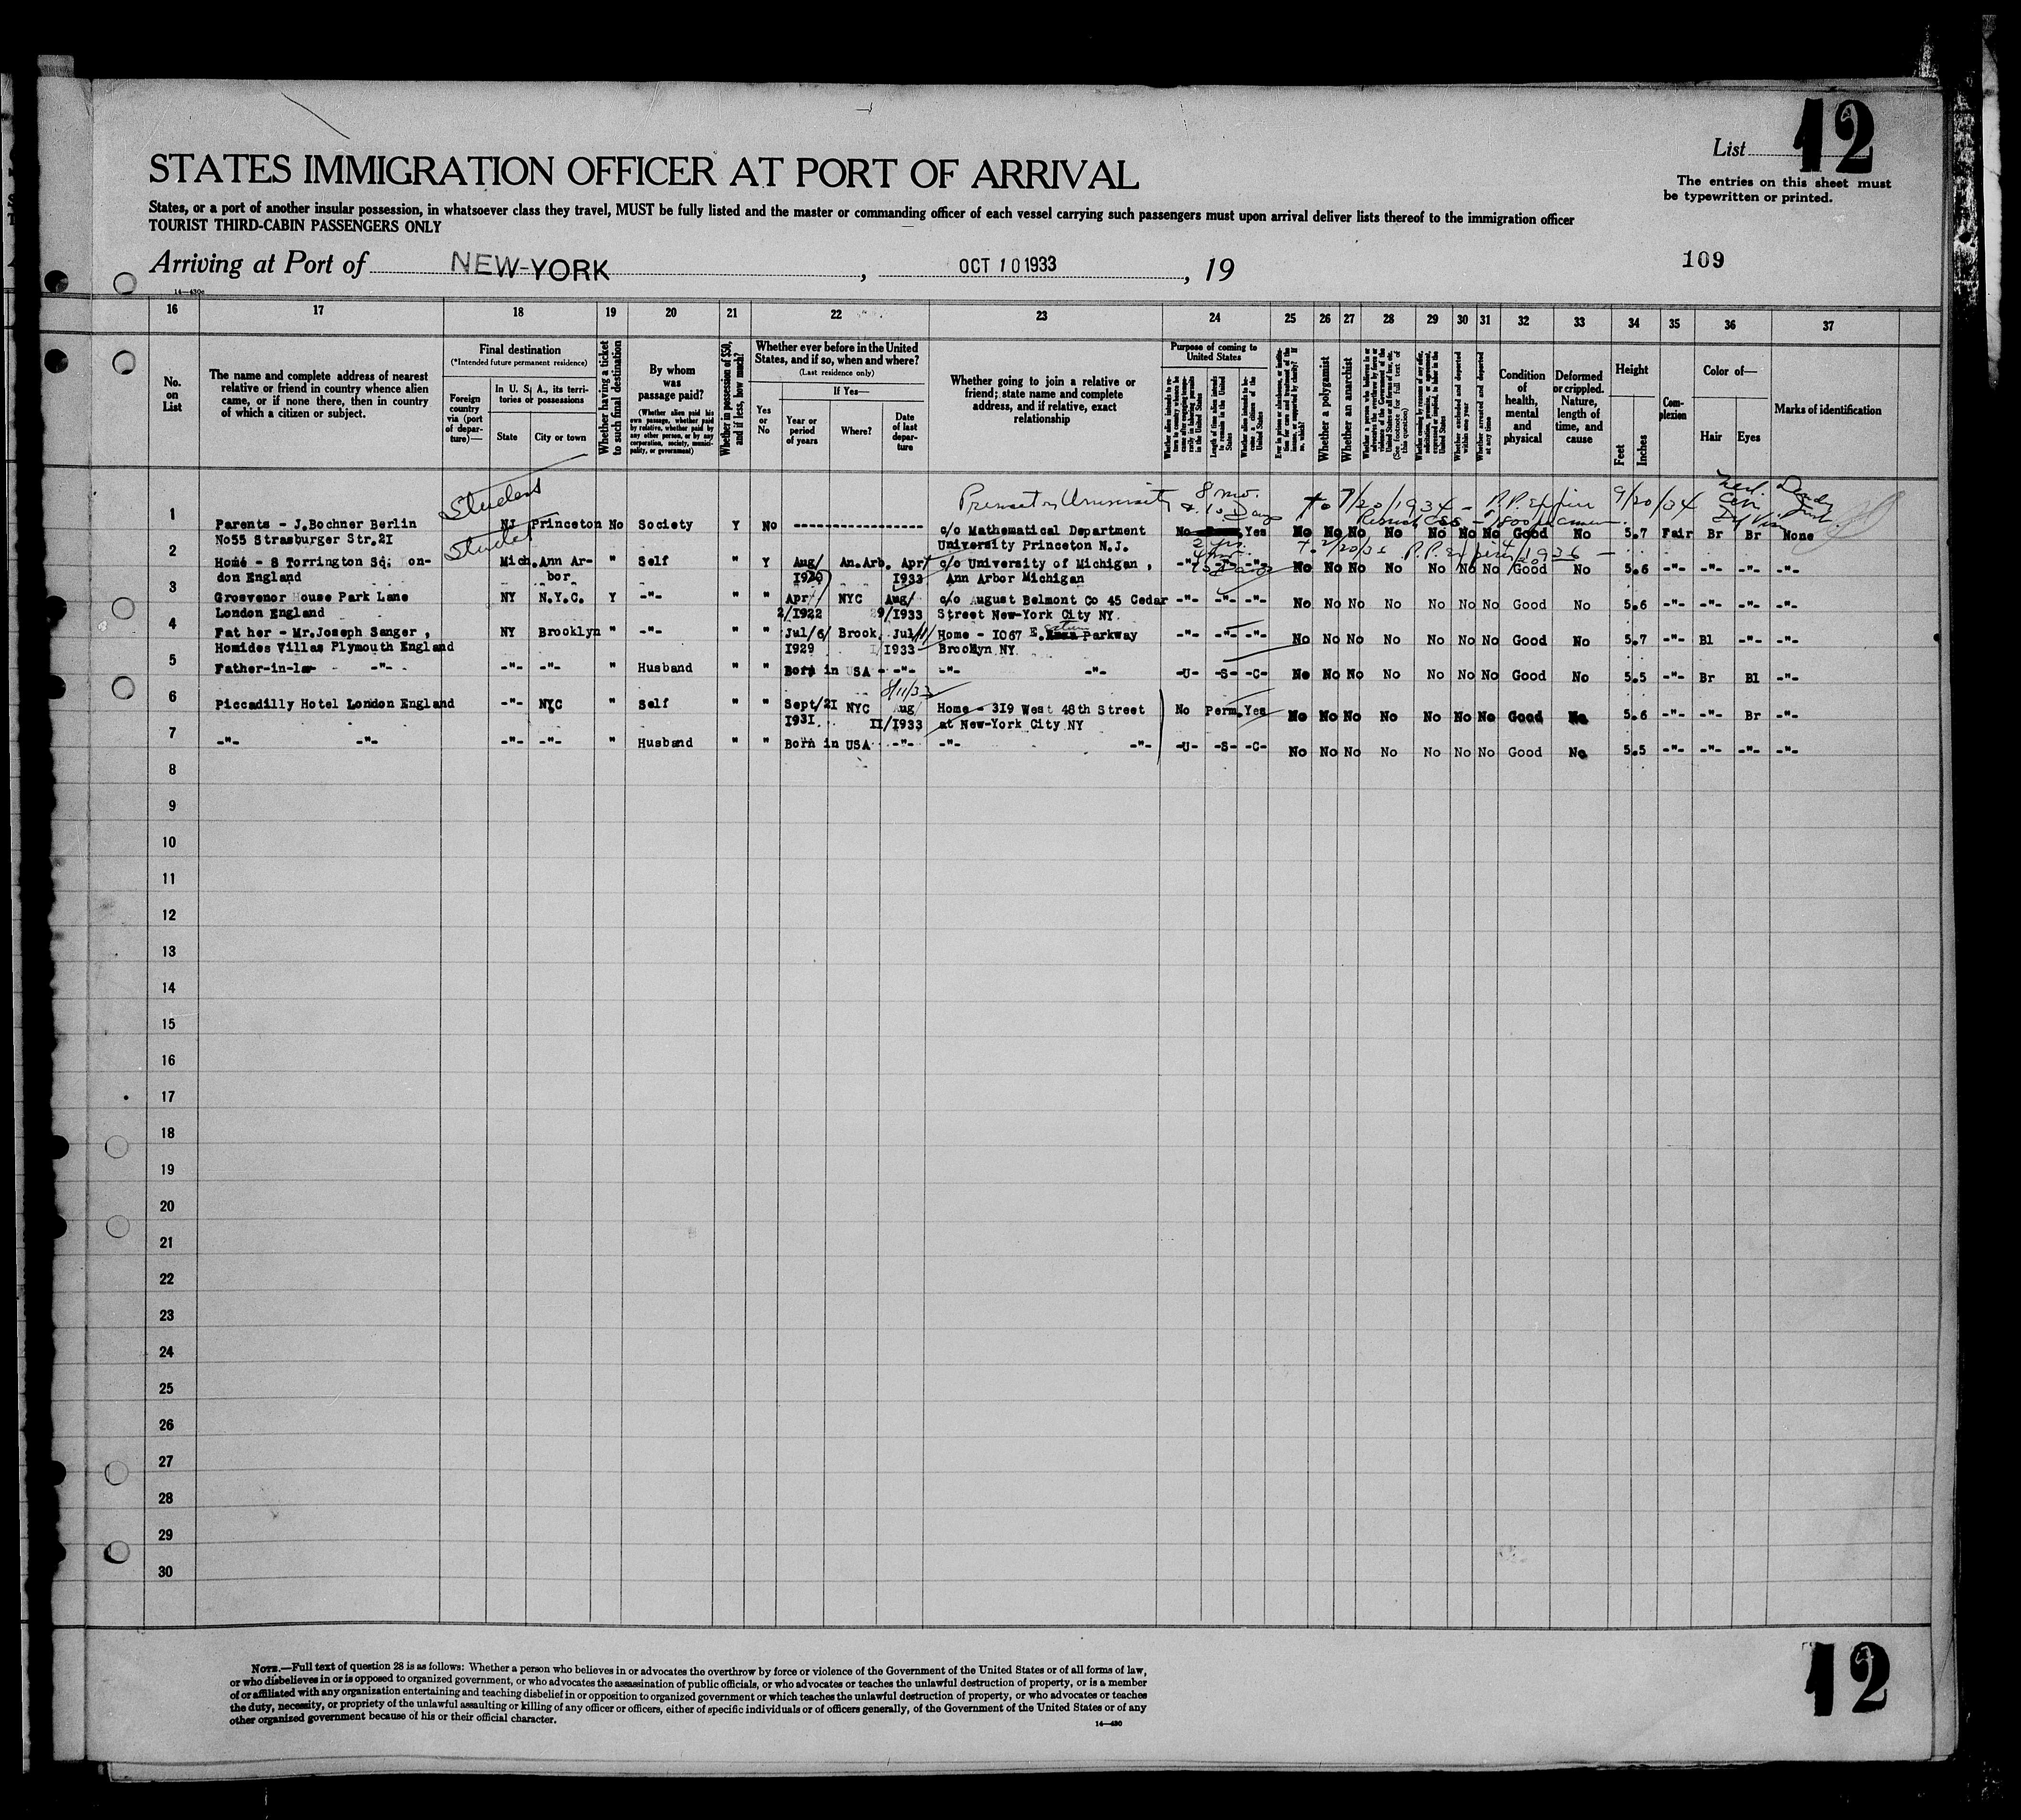 12
List
STATES IMMIGRATION OFFICER AT PORT OF ARRIVAL
The entries on this sheet must
be typewritten or printed.
States, or a port of another insular possession, in whatsoever class they travel, MUST be fully listed and the master or commanding officer of each vessel carrying such passengers must upon arrival deliver lists thereof to the immigration officer
TOURIST THIRD-CABIN PASSENGERS ONLY
Arriving at Port of NEW-YORK, OCT 10 1933, 19
109
14—430c
16 17 18 19 20 21 22 23 24 25 26 27 28 29 30 31 32 33 34 35 36 37
No. on List
The name and complete address of nearest relative or friend in country whence alien came, or if none there, then in country of which a citizen or subject.
Final destination
(*Intended future permanent residence)
Foreign country via (port of departure)—
In U. S. A., its territories or possessions
State
City or town
Whether having a ticket to such final destination
By whom was passage paid?
(Whether alien paid his own passage, whether paid by relative, whether paid by any other person, or by any corporation, society, municipality, or government)
Whether in possession of $50, and if less, how much?
Whether ever before in the United States, and if so, when and where?
(Last residence only)
Yes or No
If Yes—
Year or period of years
Where?
Date of last departure
Whether going to join a relative or friend; state name and complete address, and if relative, exact relationship
Purpose of coming to United States
Length of time alien intends to remain in the United States
Whether alien intends to become a citizen of the United States
Whether a polygamist
Whether an anarchist
Condition of health, mental and physical
Deformed or crippled. Nature, length of time, and cause
Height
Feet
Inches
Complexion
Color of—
Hair
Eyes
Marks of identification
Student
Princeton University 8 mo. & 10 Days to 7/20/1934 - P.P. Expire 9/20/34
1 Parents - J.Bochner Berlin NJ Princeton No Society Y No c/o Mathematical Department No Yes No No No No No No No Good No 5.7 Fair Br Br None
No55 Strasburger Str.2I University Princeton N.J.
Student
2 Home - 8 Torrington Sq. on- Mich. Ann Ar- " Self " Y Aug/ An.Arb. Apr c/o University of Michigan , -"- -"- -"- No No No No No No No Good No 5.6 -"- -"- -"- -"-
don England bor I920 I933 Ann Arbor Michigan
3 Grosvenor House Park Lane NY N.Y.C. Y -"- " " Apr/ NYC Aug/ c/o August Belmont Co 45 Cedar -"- -"- -"- No No No No No No No Good No 5.6 -"- -"- -"- -"-
London England 2/I922 29/I933 Street New-York City NY.
4 Father - Mr.Joseph Sanger , NY Brooklyn " -"- " " Jul/6/ Brook. Jul/ Home - I067 E. Parkway -"- -"- -"- No No No No No No No Good No 5.7 -"- Bl -"- -"-
Homides Villas Plymouth England I929 I933 Brooklyn NY.
5 Father-in-law -"- -"- -"- " Husband " " Born in USA -"- -"- -"- -U- -S- -C- No No No No No No No Good No 5.5 -"- Br Bl -"-
8/11/33
6 Piccadilly Hotel London England -"- NYC " Self " " Sept/2I NYC Aug Home - 3I9 West 48th Street No Perm. Yes No No No No No No No Good No 5.6 -"- -"- Br -"-
I93I. II/I933 at New-York City NY
7 -"- -"- -"- -"- " Husband " " Born in USA -"- -"- -"- -U- -S- -C- No No No No No No No Good No 5.5 -"- -"- -"- -"-
8
9
10
11
12
13
14
15
16
17
18
19
20
21
22
23
24
25
26
27
28
29
30
NOTE.—Full text of question 28 is as follows: Whether a person who believes in or advocates the overthrow by force or violence of the Government of the United States or of all forms of law,
or who disbelieves in or is opposed to organized government, or who advocates the assassination of public officials, or who advocates or teaches the unlawful destruction of property, or is a member
of or affiliated with any organization entertaining and teaching disbelief in or opposition to organized government or which teaches the unlawful destruction of property, or who advocates or teaches
the duty, necessity, or propriety of the unlawful assaulting or killing of any officer or officers, either of specific individuals or of officers generally, of the Government of the United States or of any
other organized government because of his or their official character.
14—430
12